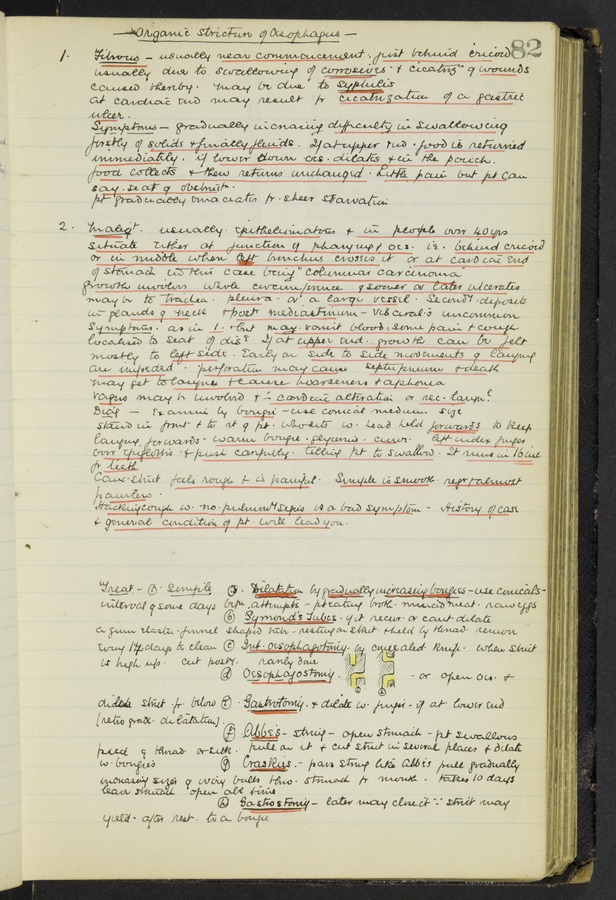 Organic Stricture of Oesophagus —
82
1. Fibrous — usually near commencement, just behind cricoid
usually due to swallowing of corrosives & cicatrizn of wounds
caused thereby. May be due to Syphilis
at cardiac end may result fr cicatrization of a gastric
ulcer.
Symptoms — gradually increasing difficulty in swallowing
firstly of solids & finally fluids. If at upper end food is returned
immediately. if lower down oes. dilates & in the pouch
food collects & then returns unchanged. Little pain but pt can
say seat of obstruct.
pt gradually emaciates fr sheer starvation
2. Maligt. usually epitheliomatous & in people over 40 yrs
situate either at junction of pharynx & oes. i.e. behind cricoid
or in middle where left bronchus crosses it or at cardiac end
of stomach in this case being "columnar carcinoma"
growth involves whole circumference & sooner or later ulcerates
may be to trachea. pleura. or a large vessel. Secondy deposits
in glands of neck & post mediastinum — visceral's uncommon
Symptoms. as in 1. but may vomit blood, some pain & cough
localised to seat of dise If at upper end. growth can be felt
mostly to left side. Early on side to side movements of larynx
are impeded. perforation may cause septic pneum & death
may get to larynx & cause hoarseness & aphonia
Vagus may be involved & cardiac alteration or rec. laryn?
Diag — Examine by bougie — use conical medium size
stand in front & to rt of pt. who sits w. head held forwards to keep
larynx forwards — warm bougie. glycerine. curve. left index finger
over epiglottis & push carefully. telling pt to swallow. It runs in 16 ins
fr teeth
Canc. strict feels rough & is painful. Simple is smooth. regr & almost
painless.
Hacking cough w. no pulmony signs is a bad symptom — History of case
& general condition of pt. will lead you.
Treat — ① Simple ⓐ. Dilatation by gradually increasing bougies — use conicals —
interval of some days betn attempts — pt eating broth. minced meat. raw eggs
ⓑ Symond's Tubes — if it recur. or cant dilate
a gum elastic funnel shaped tube. resting on strict & held by thread. remove
every 14 days to clean ⓒ Int. oesophagotomy. by concealed knife. when strict
is high up. cut posty. rarely done
ⓓ Oesophagostomy. — or open oes. &
dilate strict fr below ⓔ Gastrotomy. & dilate w. fingers — if at lower end
(retrograde dilatation).
ⓕ Abbe's — string — open stomach — pt swallows
piece of thread or silk. pull on it & cut strict in several places & dilate
w. bougies ⓖ Craske's. — pass string like Abbe's pull gradually
increasing sizes of ivory balls thro. stomach fr mouth. takes 10 days
leave stomach open all time
ⓗ Gastrostomy — later may close it ∵ strict may
yield. after rest. to a bougie